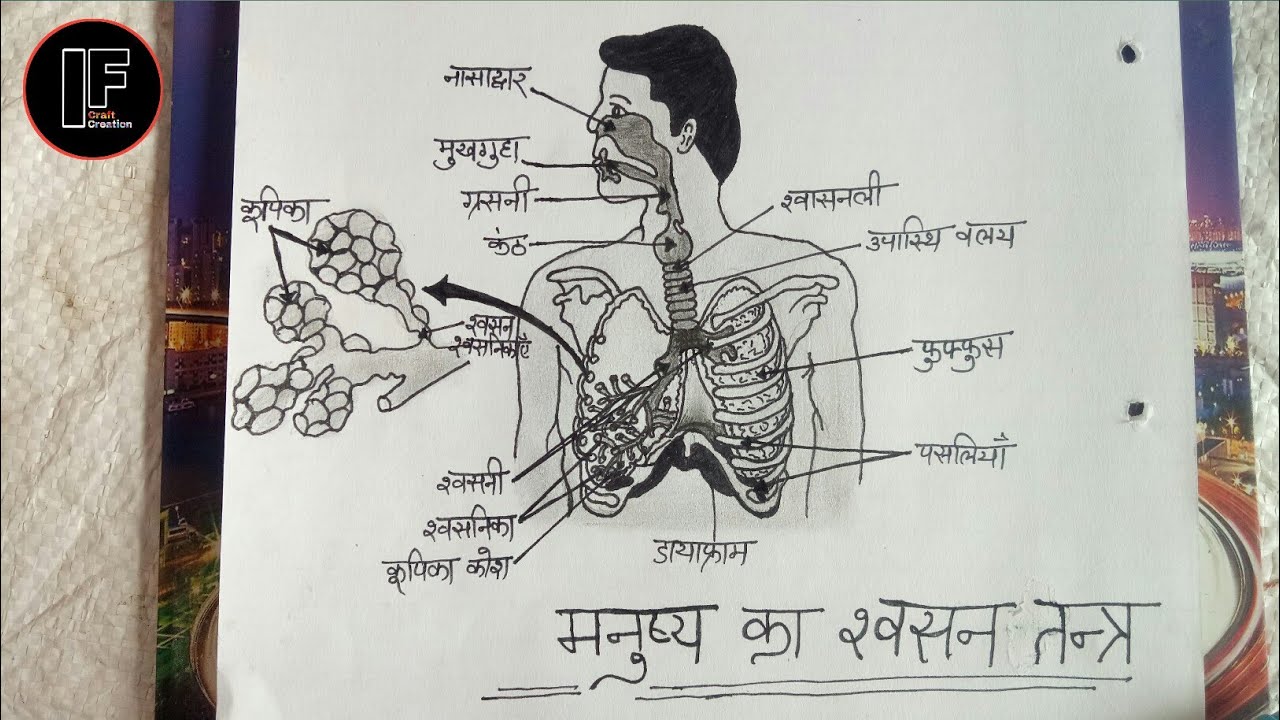 IF
Craft
Creation
नासाद्वार
मुखगुहा
ग्रसनी
कंठ
श्वासनली
उपास्थि वलय
कूपिका
श्वसन
श्वसनिकाएँ
फुफ्फुस
पसलियाँ
श्वसनी
श्वसनिका
कूपिका कोश
डायाफ्राम
मनुष्य का श्वसन तन्त्र